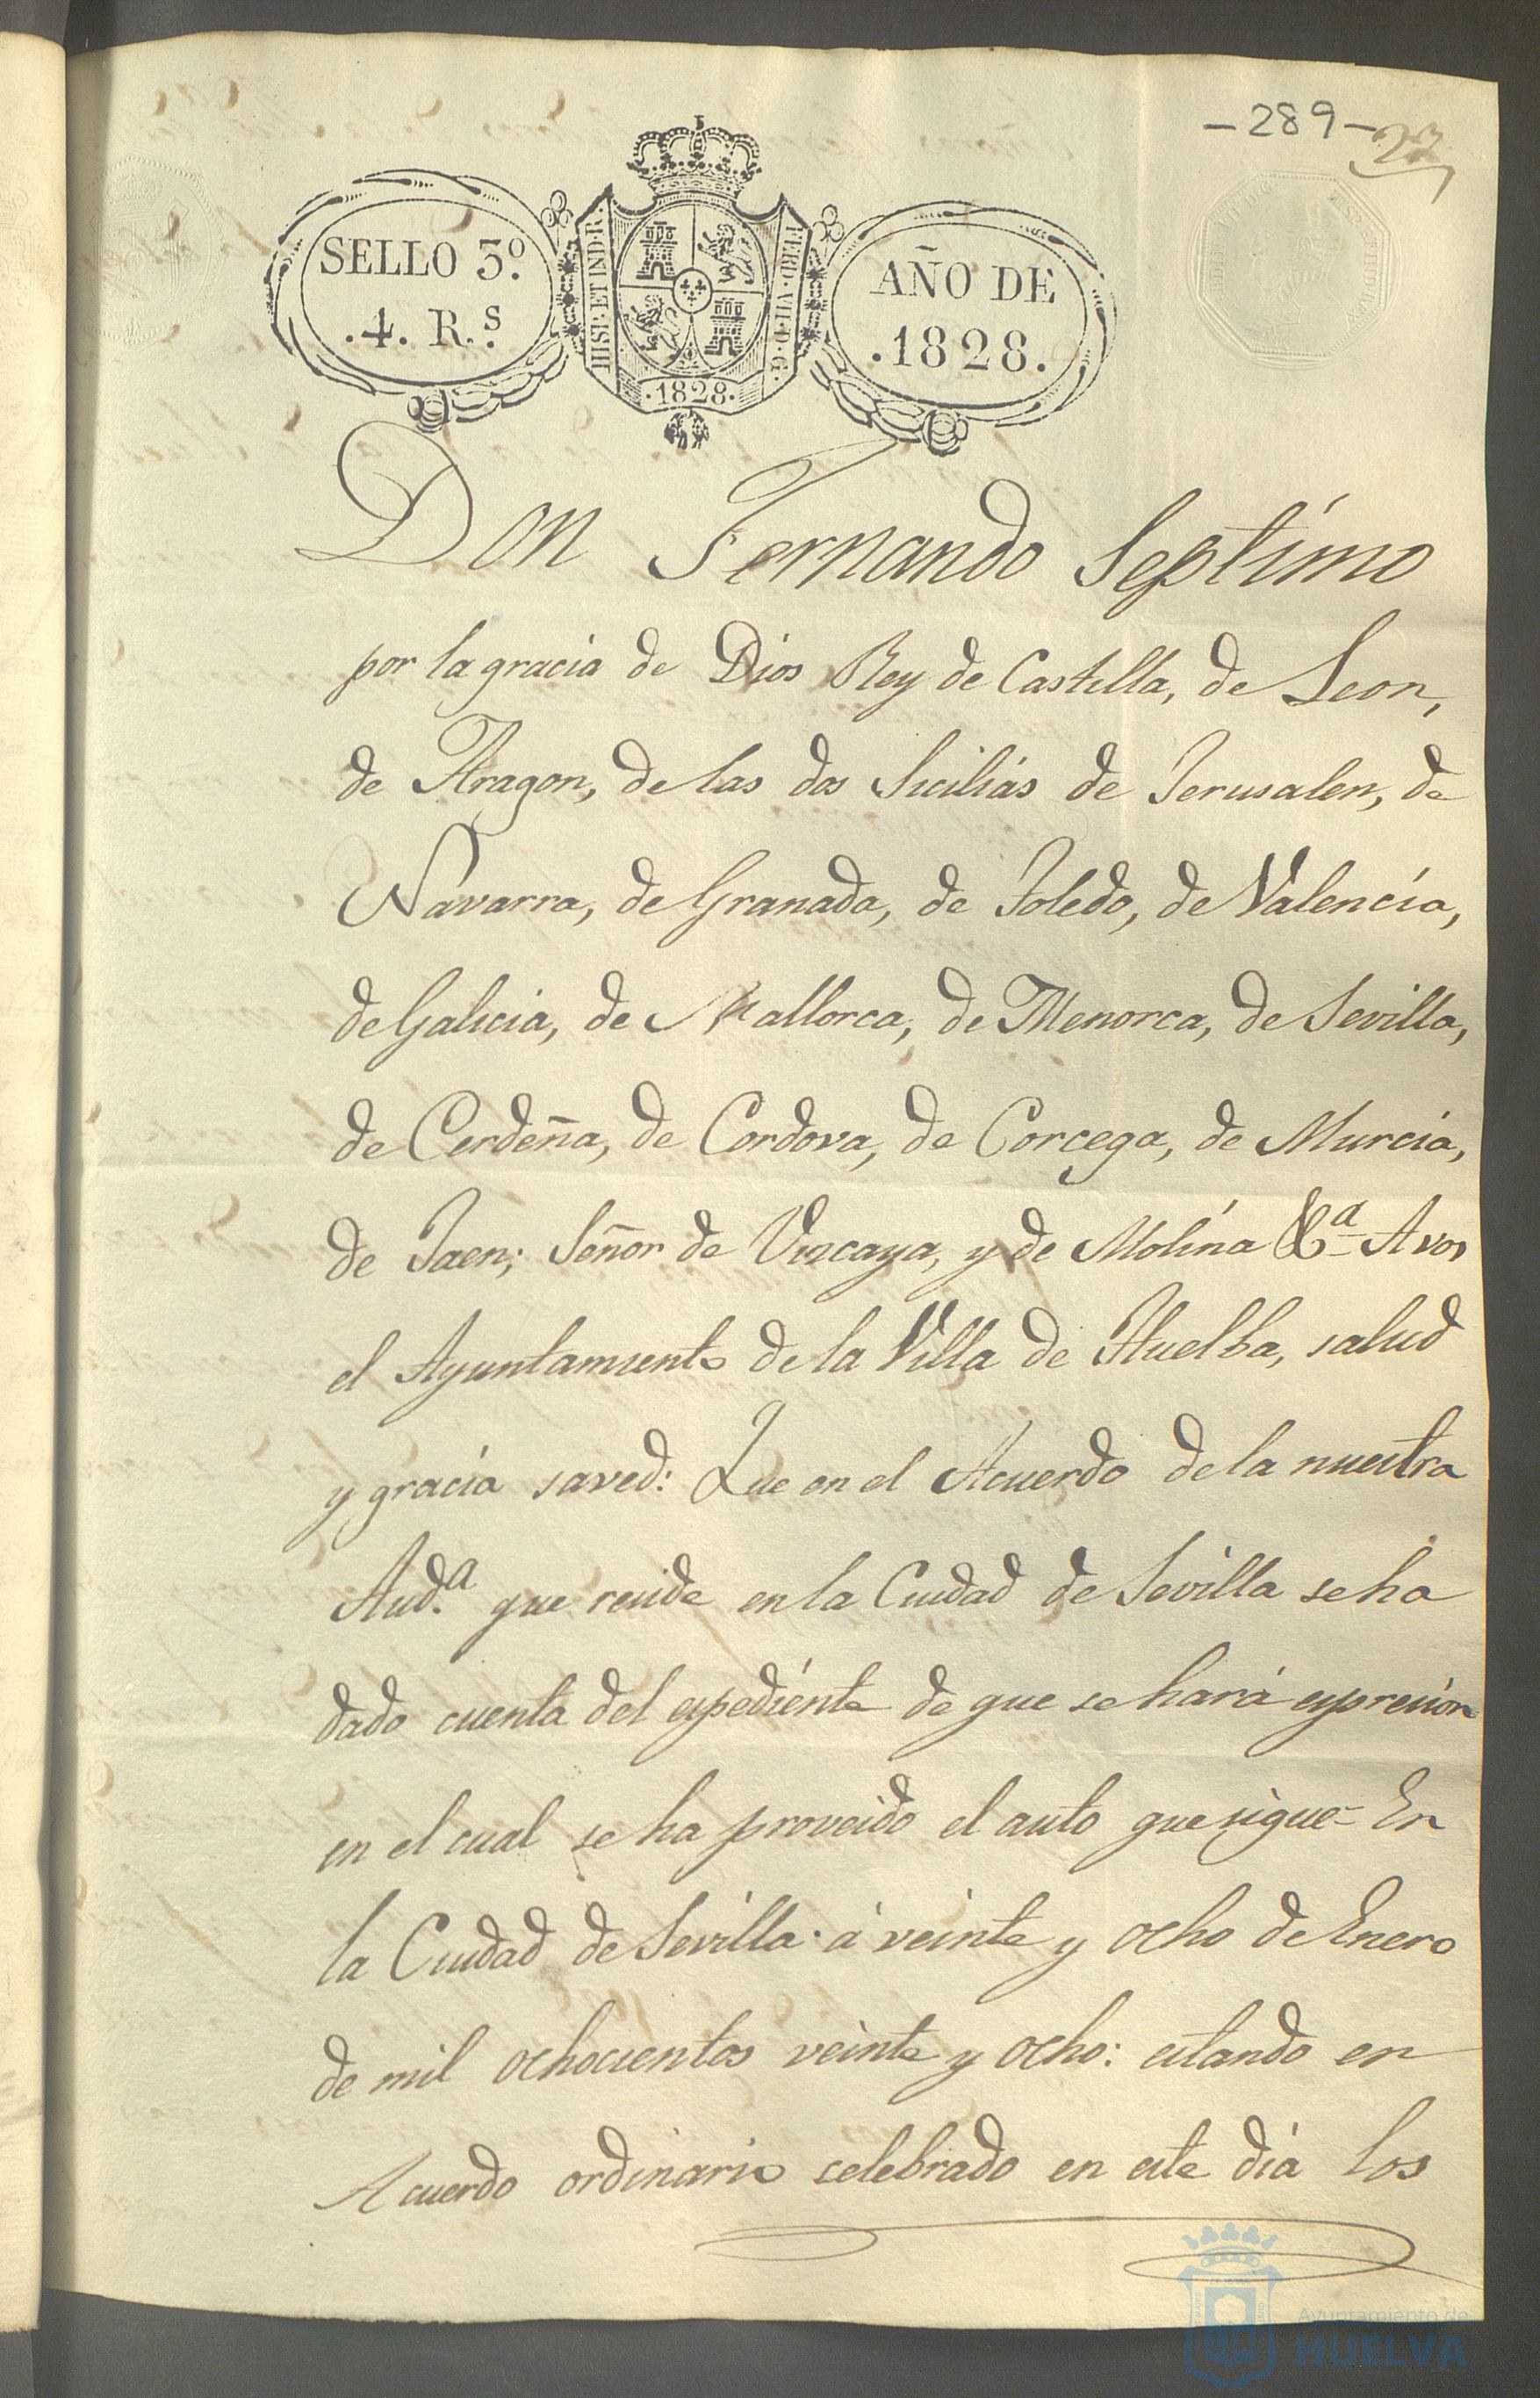 -289-
23
SELLO 3º.
.4. R.s
HISP. ET IND. R.
FERD. VII. D. G.
.1828.
AÑO DE
.1828.
Don Fernando Septimo
por la gracia de Dios Rey de Castilla, de Leon,
de Aragon, de las dos Sicilias de Jerusalen, de
Navarra, de Granada, de Toledo, de Valencia,
de Galicia, de Mallorca, de Menorca, de Sevilla,
de Cerdeña, de Cordova, de Corcega, de Murcia,
de Jaen; Señor de Viscaya, y de Molina &a A vos
el Ayuntamiento de la Villa de Huelba, salud
y gracia saved: Que en el Acuerdo de la nuestra
Aud.a que reside en la Ciudad de Sevilla se ha
dado cuenta del espediente de que se hará espresion
en el cual se ha proveido el auto que sigue= En
la Ciudad de Sevilla á veinte y ocho de Enero
de mil ochocientos veinte y ocho: estando en
Acuerdo ordinario celebrado en este dia los
Ayuntamiento de
HUELVA